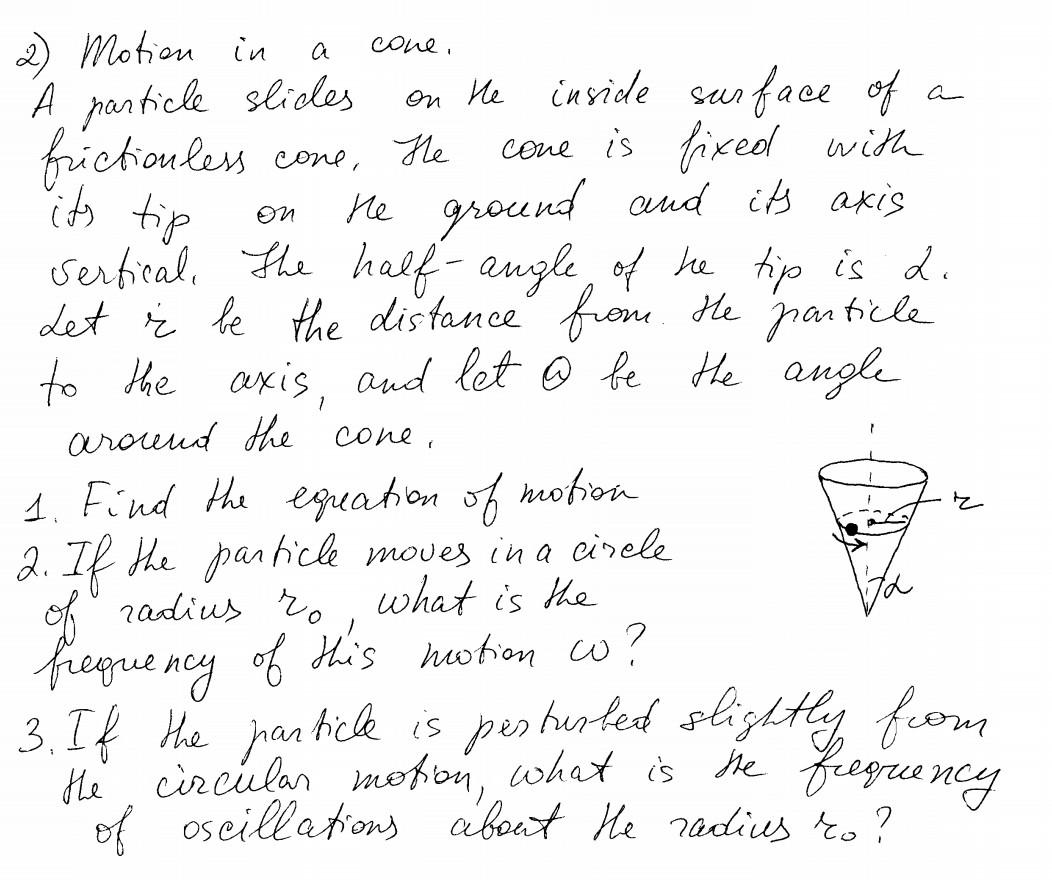 2) Motion in a cone.
A particle slides on the inside surface of a
frictionless cone. The cone is fixed with
its tip on the ground and its axis
vertical. The half-angle of the tip is α.
Let r be the distance from the particle
to the axis, and let θ be the angle
around the cone.
1. Find the equation of motion
2. If the particle moves in a circle
of radius r₀, what is the
frequency of this motion ω?
3. If the particle is perturbed slightly from
the circular motion, what is the frequency
of oscillations about the radius r₀?
r
α